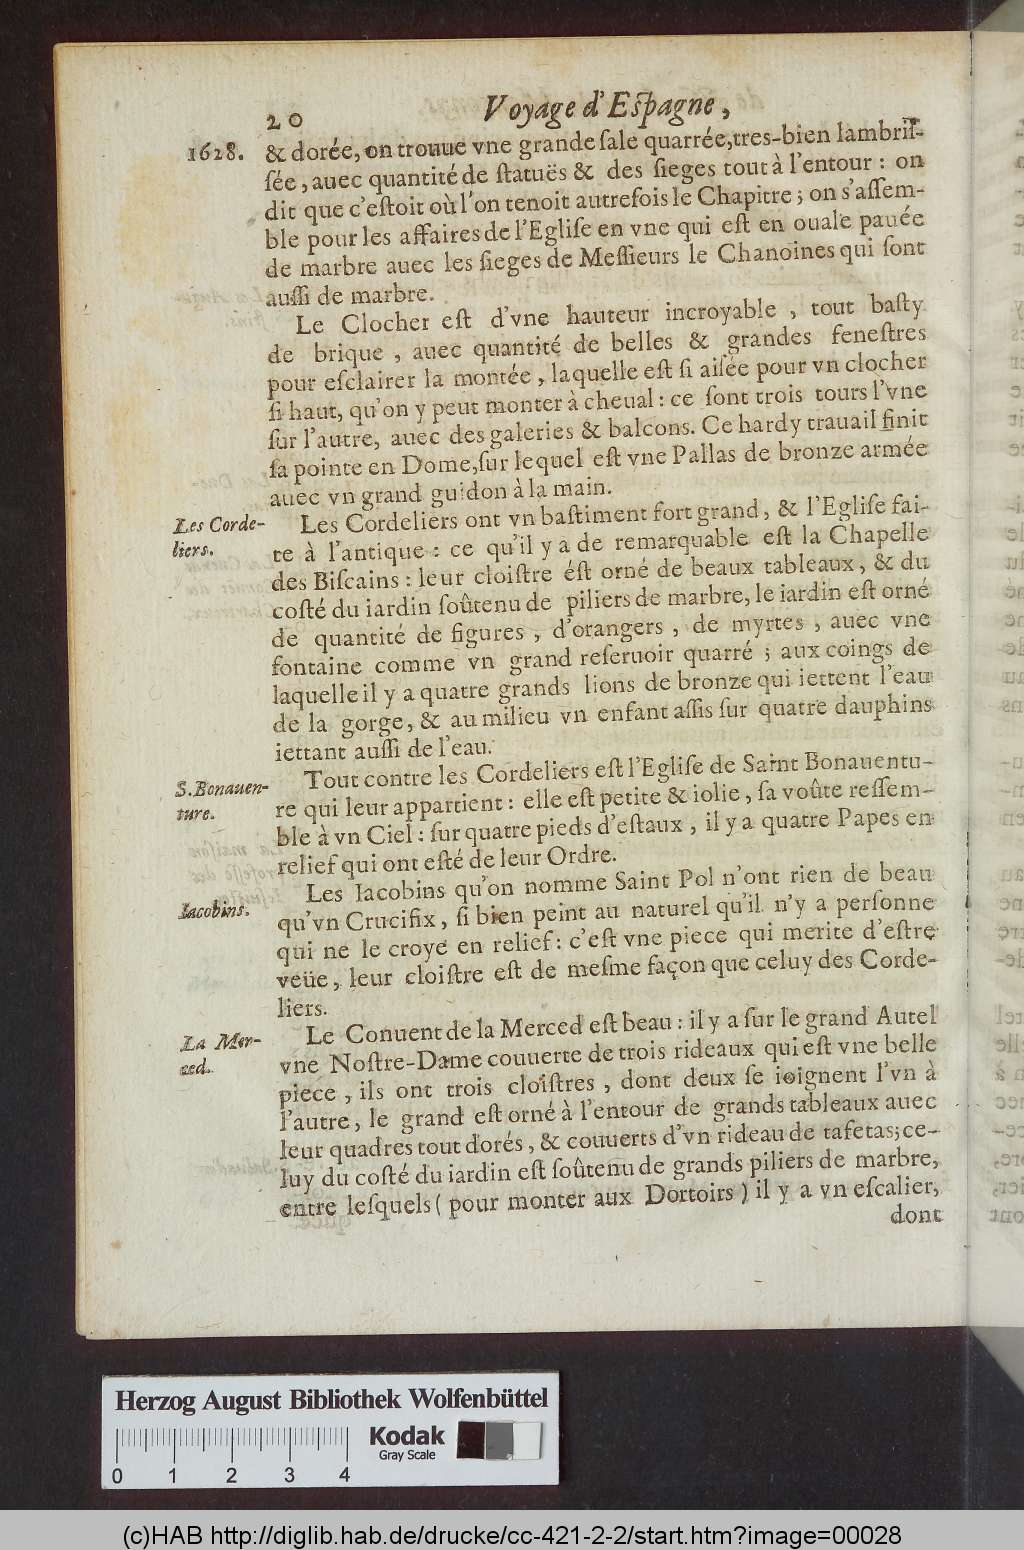 20 Voyage d'Eſpagne,
1628. & dorée, on trouue vne grande ſale quarrée, tres-bien lambriſ-
ſée, auec quantité de ſtatuës & des ſieges tout à l'entour : on
dit que c'eſtoit où l'on tenoit autrefois le Chapitre ; on s'aſſem-
ble pour les affaires de l'Egliſe en vne qui eſt en ouale pauée
de marbre auec les ſieges de Meſſieurs le Chanoines qui ſont
auſſi de marbre.
Le Clocher eſt d'vne hauteur incroyable , tout baſty
de brique , auec quantité de belles & grandes feneſtres
pour eſclairer la montée , laquelle eſt ſi aiſée pour vn clocher
ſi haut, qu'on y peut monter à cheual : ce ſont trois tours l'vne
ſur l'autre, auec des galeries & balcons. Ce hardy trauail finit
ſa pointe en Dome, ſur lequel eſt vne Pallas de bronze armée
auec vn grand guidon à la main.
Les Corde-
liers.
Les Cordeliers ont vn baſtiment fort grand , & l'Egliſe fai-
te à l'antique : ce qu'il y a de remarquable eſt la Chapelle
des Biſcains : leur cloiſtre éſt orné de beaux tableaux , & du
coſté du iardin ſoûtenu de piliers de marbre, le iardin eſt orné
de quantité de figures , d'orangers , de myrtes , auec vne
fontaine comme vn grand reſeruoir quarré ; aux coings de
laquelle il y a quatre grands lions de bronze qui iettent l'eau
de la gorge, & au milieu vn enfant aſſis ſur quatre dauphins
iettant auſſi de l'eau.
S. Bonauen-
ture.
Tout contre les Cordeliers eſt l'Egliſe de Saint Bonauentu-
re qui leur appartient : elle eſt petite & iolie , ſa voûte reſſem-
ble à vn Ciel : ſur quatre pieds d'eſtaux , il y a quatre Papes en
relief qui ont eſté de leur Ordre.
Iacobins.
Les Iacobins qu'on nomme Saint Pol n'ont rien de beau
qu'vn Crucifix, ſi bien peint au naturel qu'il n'y a perſonne
qui ne le croye en relief : c'eſt vne piece qui merite d'eſtre
veüe , leur cloiſtre eſt de meſme façon que celuy des Corde-
liers.
La Mer-
ced.
Le Conuent de la Merced eſt beau : il y a ſur le grand Autel
vne Noſtre-Dame couuerte de trois rideaux qui eſt vne belle
piece , ils ont trois cloiſtres , dont deux ſe ioignent l'vn à
l'autre, le grand eſt orné à l'entour de grands tableaux auec
leur quadres tout dorés , & couuerts d'vn rideau de tafetas; ce-
luy du coſté du iardin eſt ſoûtenu de grands piliers de marbre,
entre leſquels ( pour monter aux Dortoirs ) il y a vn eſcalier,
dont
Herzog August Bibliothek Wolfenbüttel
Kodak
Gray Scale
0 1 2 3 4
(c)HAB http://diglib.hab.de/drucke/cc-421-2-2/start.htm?image=00028